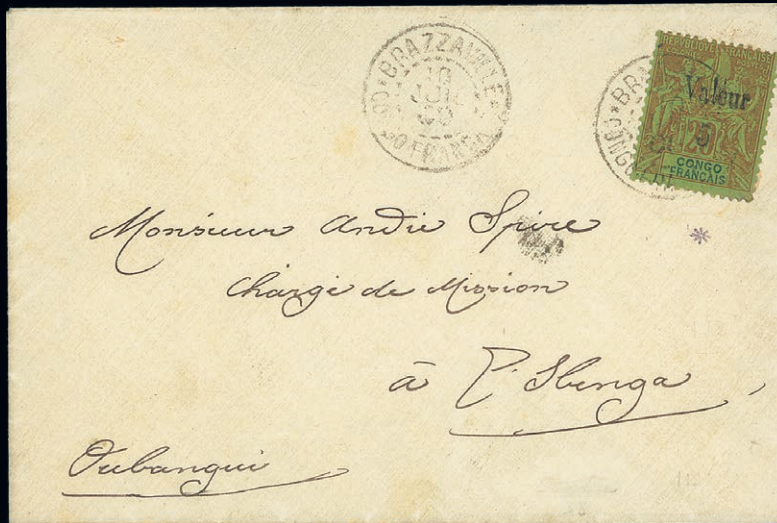 BRAZZAVILLE
10
JUIL
CONGO FRANÇAIS
Valeur
5
CONGO
FRANÇAIS
Monsieur André Spire
Chargé de Mission
à l'Ibenga,
Oubangui